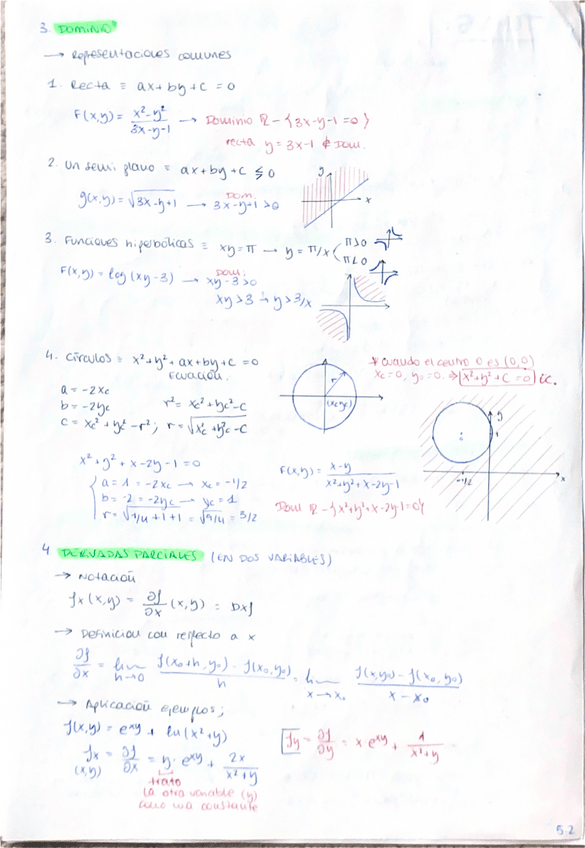 3. DOMINIO
→ Representaciones comunes
1. Recta ≡ ax + by + c = 0
F(x,y) = (x² - y²)/(3x - y - 1) → Dominio ℝ - {3x - y - 1 = 0}
recta y = 3x - 1 ∉ Dom.
2. Un semi plano ≡ ax + by + c ≶ 0
g(x,y) = √(3x - y + 1) → Dom. 3x - y - 1 > 0
y
x
3. Funciones hiperbólicas ≡ xy = π → y = π/x < π > 0
π < 0
F(x,y) = log(xy - 3) → Dom: xy - 3 > 0
xy > 3 → y > 3/x
4. Círculos ≡ x² + y² + ax + by + c = 0
Ecuación.
* Cuando el centro 0 es (0,0)
xc = 0, yc = 0. ⇒ x² + y² + c = 0 Ec.
a = -2xc
b = -2yc
r² = xc² + yc² - c
c = xc² + yc² - r² ; r = √(xc² + yc² - c)
r
(xc, yc)
x² + y² + x - 2y - 1 = 0
a = 1 = -2xc → xc = -1/2
b = -2 = -2yc → yc = 1
r = √(1/4 + 1 + 1) = √(9/4) = 3/2
F(x,y) = (x - y)/(x² + y² + x - 2y - 1)
Dom ℝ - {x² + y² + x - 2y - 1 = 0}
y
c
1
-1/2
x
4. DERIVADAS PARCIALES (EN DOS VARIABLES)
→ Notación
fx (x,y) = ∂f/∂x (x,y) = Dxf
→ Definición con respecto a x
∂f/∂x = lim h→0 (f(x0 + h, y0) - f(x0, y0))/h = lim x→x0 (f(x,y0) - f(x0, y0))/(x - x0)
→ Aplicación ejemplos;
f(x,y) = e^xy + ln(x² + y)
fx (x,y) = ∂f/∂x = y · e^xy + 2x/(x² + y)
fy = ∂f/∂y = x e^xy + 1/(x² + y)
trato
la otra variable (y)
como una constante
5.2